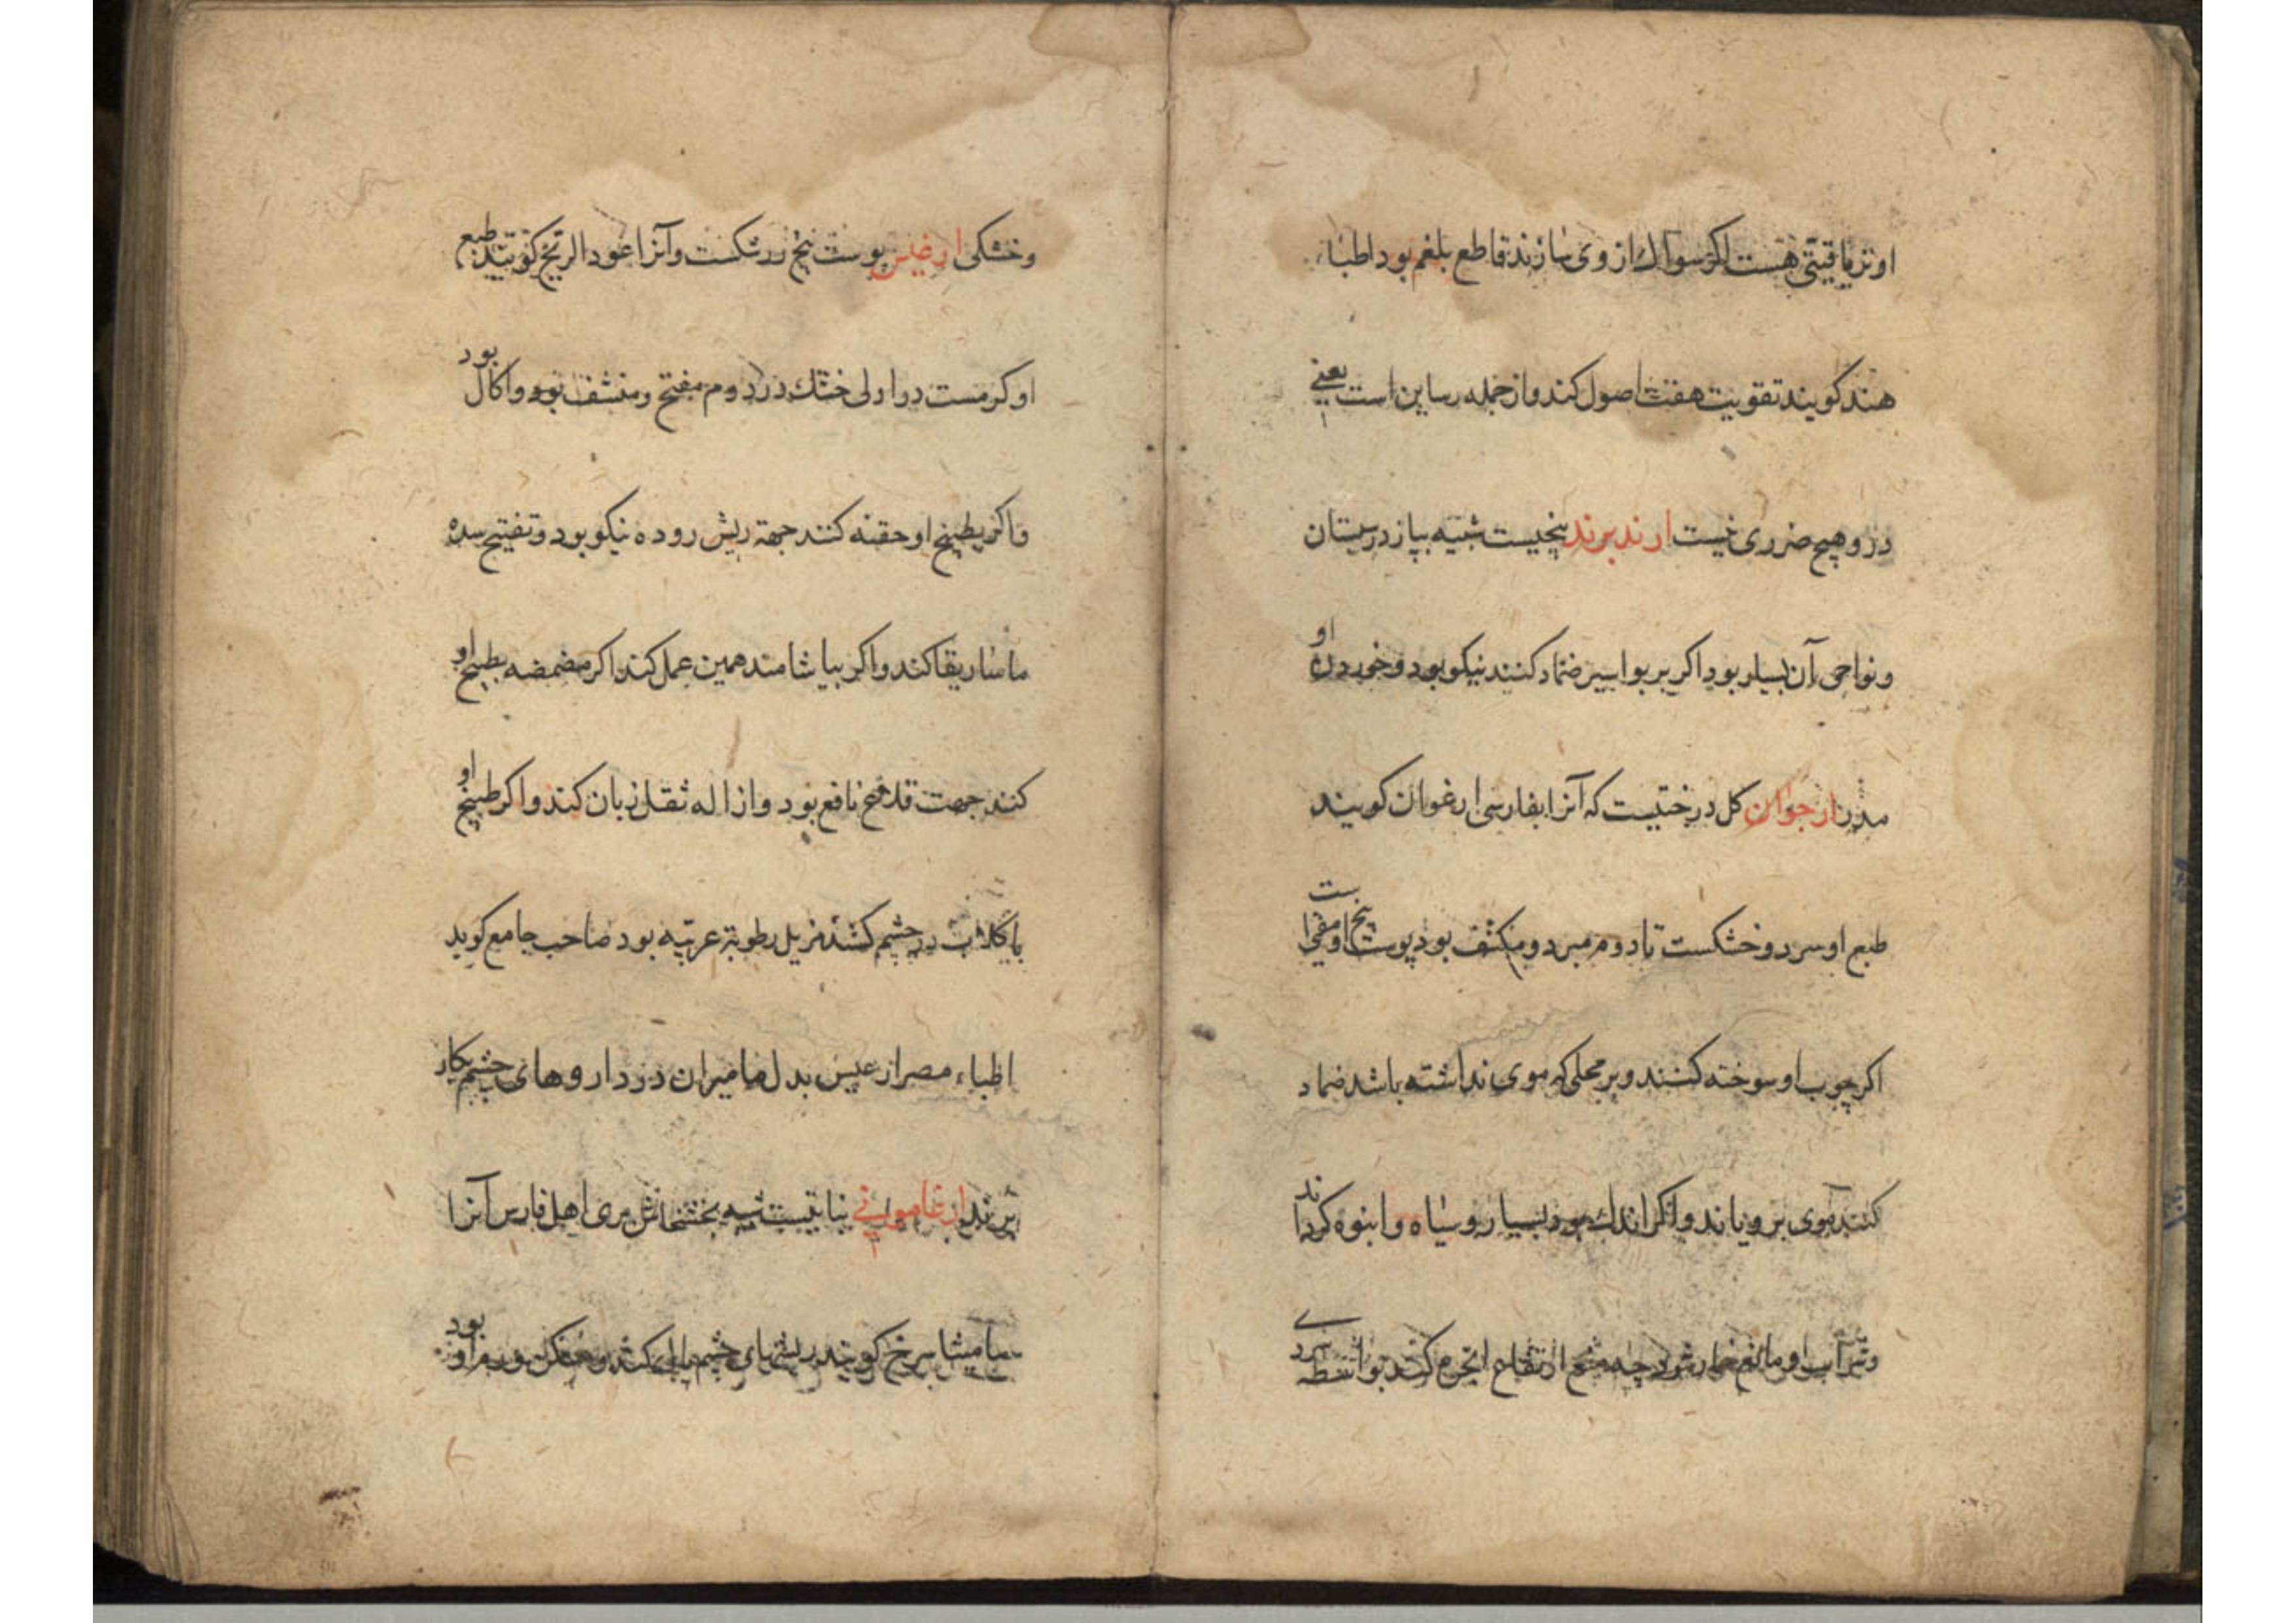 او تریاقیتی هست اکر سواک از وی سازند قاطع بلغم بود اطباء
هند کویند تقویت هفت اصول کند و از جمله رساین است یعنی
در و هیچ ضرری نیست ارند برند بیخیست شبیه بپاز در سیستان
و نواحی آن بسیار بود اکر بر بواسیر ضماد کنند نیکو بود و خوردن او
ارجوان کل درختیست که آنرا بفارسی ارغوان کویند
طبع او سرد و خشکست تا دوم مبرد و مکثف بود پوست بیخ او مقیء است
اکر چوب او سوخته کنند و بر محلی که موی نداشته باشد ضماد
کنند موی برویاند و اکر اندک بود بسیار و سیاه و انبوه کرداند
و شراب او مانع خمار شود چه منع ارتفاع ابخره کند بواسطه سردی
و خشکی ارغیس پوست بیخ زرشکست و آنرا عود الریح کویند طبع
او کرمست در اولی خشک در دوم مفتح و منشف بود و اکال بود
و اکر بطبیخ او حقنه کنند جهة ریش روده نیکو بود و تفتیح سده
ماساریقا کند و اکر بیاشامند همین عمل کند اکر مضمضه بطبیخ او
کنند جهت قلاع نافع بود و ازاله ثقل زبان کند و اکر طبیخ او
با کلاب در چشم کشند مزیل رطوبة غریبه بود صاحب جامع کوید
اطباء مصر ارغیس بدل مامیران در داروهای چشم بکار
برند ارغامونی نباتیست شبیه بخشخاش بری اهل فارس آنرا
مامیثا سرخ کویند ریشهای چشم پاک کند و بود